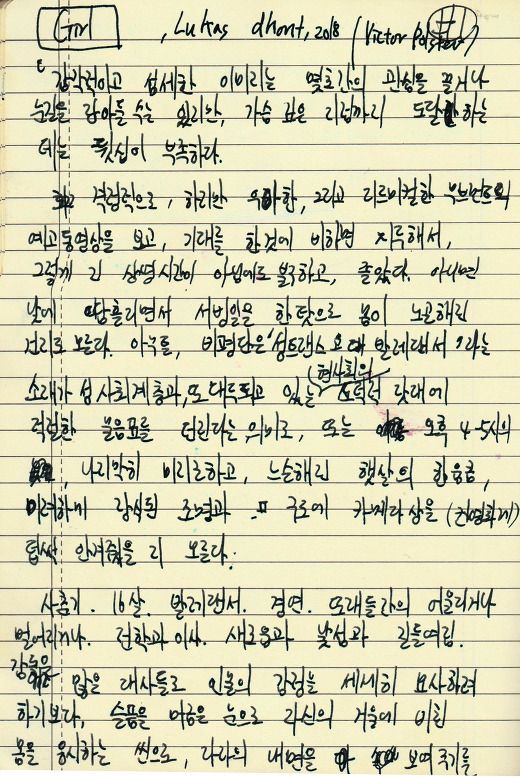 Girl , Lukas dhont, 2018 (Victor Polster)
감각적이고 섬세한 이미지는 몇초간의 관심을 끌거나
눈길을 잡아둘 수는 있지만, 가슴 깊은 리검까지 도달 하는
데는 뒷심이 부족하다.
격렬적으로, 하지만 우아한, 그리고 리드미컬한 무브먼트의
예고동영상을 보고, 기대를 한것에 비하면 지루해서,
그렇게 긴 상영시간이 아님에도 불구하고, 졸았다. 아니면
낮에 땀흘리면서 서빙일을 한 탓으로 몸이 노곤해진
건지도 모른다. 아무튼, 비평단은 '성트랜스 10대 발레댄서' 라는
소재가 성사회계층과, 또 대두되고 있는 현사회의 도덕적 잣대에
적절한 물음표를 던진다는 의미로, 또는 오후 4-5시의
나지막히 미리하고, 느슨해진 햇살의 한움큼,
미려하게 장식된 조명과 구도에 카메라상을 (칸영화제)
덥썩 안겨줬을 지 모른다.
사춘기. 16살. 발레댄서. 경연. 또래들과의 어울리거나
멀어지거나. 전학과 이사. 새로움과 낯섬과 길들여짐.
많은 대사들로 인물의 감정을 세세히 묘사하려
하기보다, 슬픔을 머금은 눈으로 자신의 거울에 비친
몸을 응시하는 씬으로, 라라의 내면을 보여주기를